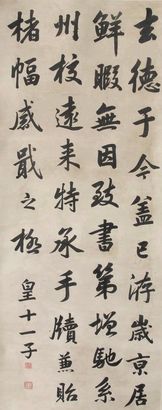 去德于今盖已浒歲京居
鮮暇無因致書第增馳系
州校遠来特承手牘兼貽
楮幅感戢之極
皇十一子